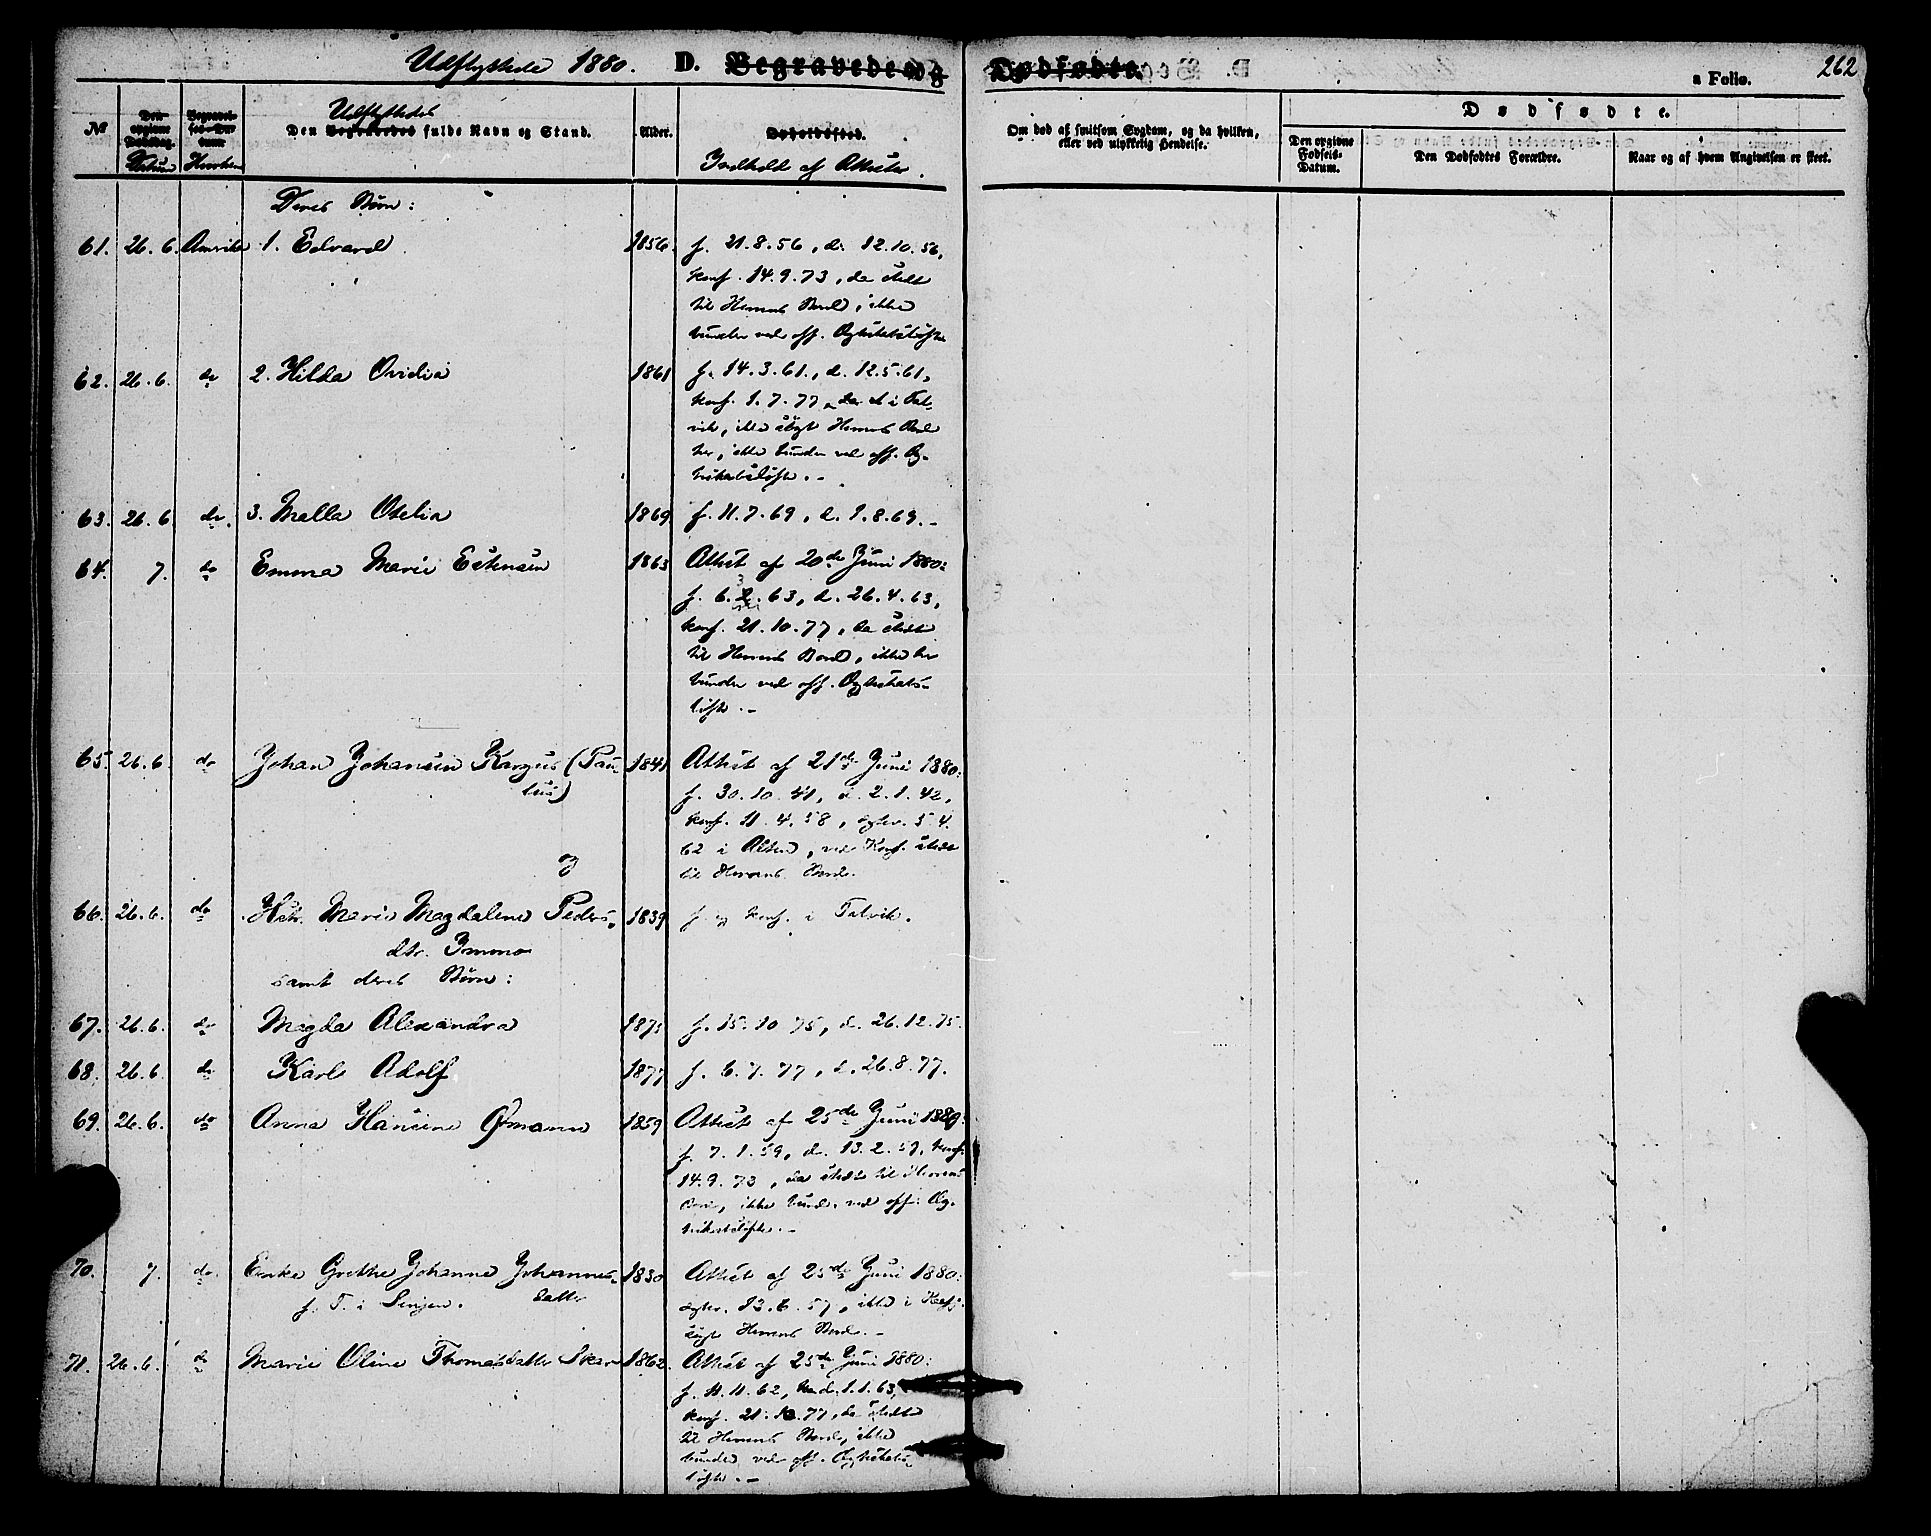 Udflyttede 1880. D. Begravede og Dødfødte.
a Folio. 262
No
Den opgivne Dødsdag. Datum
Begravelses-Datum Hvorhen
Udflyttedes
Den Begravedes fulde Navn og Stand.
Alder.
Opholdssted.
Indhold af Attester.
Om død af smitsom Sygdom, og da hvilken,
eller ved ulykkelig Hendelse.
Dødfødte.
Den opgivne
Fødsels-
Datum.
Den Dødfødtes Forældre.
Naar og af hvem Angivelsen er skeet.
Deres Børn:
61. 26.6. Amerika 1. Edvard 1856. f. 21.8.56, d. 12.10.56,
konf. 14.9.73, da stedt
til Herrens Bord, ikke
bunden ved off. Ægteskabsløfte
62. 26.6. do 2. Hilda Ovidia 1861 f. 14.3.61., d. 12.5.61,
konf. 1.7.77, i Tal-
vik, ikke søgt Herrens Bord
her, ikke bunden ved off. Æg-
teskabsløfte.-
63. 26.6. do. 3. Malla Otelia 1869 f. 11.7.69, d. 1.8.69.-
64. 7. do Emma Marie Estensen 1863 Attest af 20de Juni 1880:
3
f. 6.2.63, d. 26.4.63,
konf. 21.10.77, da stedt
til Herrens Bord, ikke her
bunden ved off. Ægteskabs-
løfte.-
65. 26.6. do Johan Johansen Kargus (Pau- 1841 Attest af 21de Juni 1880:
lus) f. 30.10.41, d. 2.1.42,
konf. 11.4.58, egtev. 5.4.
62 i Alten, ved Konf. stedt
og til Herrens Bord.
66. 26.6. do Hstr. Marie Magdalene Peders- 1839 f. og konf. i Talvik.
dtr. Immo
samt deres Børn:
67. 26.6. do Magda Alexandra 1875 f. 15.10.75, d. 26.12.75.
68. 26.6. do Karl Adolf 1877 f. 6.7.77, d. 26.8.77.
69. 26.6. do Anna Hansine Ømann 1859 Attest af 25de Juni 1880:
f. 7.1.59, d. 13.2.59, konf.
14.9.73, da stedt til Herrens
Bord, ikke bund. ved off. Æg-
teskabsløfte.-
70. 7. do. Enke Grethe Johanne Johannes- 1830 Attest af 25de Juni 1880:
f. T. i Senjen. datter egtev. 13.6.57, ikke i
søgt Herrens Bord.-
71. 26.6. do Marie Oline Thomasdatter Skar 1862. Attest af 25de Juni 1880:
f. 11.11.62, d. 1.1.63,
konf. 21.10.77, da stedt
til Herrens Bord, ikke
bunden ved off. Ægteskabs-
løfte.-